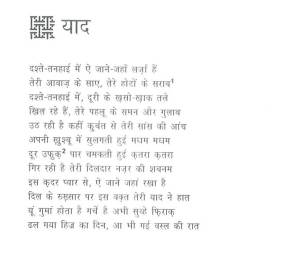 याद
दश्ते-तनहाई में ऐ जाने-जहाँ लर्ज़ां हैं
तेरी आवाज़ के साए, तेरे होठों के सराब¹
दश्ते-तनहाई में, दूरी के ख़सो-ख़ाक तले
खिल रहे हैं, तेरे पहलू के समन और गुलाब
उठ रही है कहीं क़ुर्बत से तेरी सांस की आंच
अपनी ख़ुश्बू में सुलगती हुई मद्धम मद्धम
दूर उफ़ुक़² पार चमकती हुई क़तरा क़तरा
गिर रही है तेरी दिलदार नज़र की शबनम
इस क़दर प्यार से, ऐ जाने जहां रखा है
दिल के रुख़सार पर इस वक़्त तेरी याद ने हात
यूं गुमां होता है गर्चे है अभी सुब्हे फ़िराक़
ढल गया हिज्र का दिन, आ भी गई वस्ल की रात